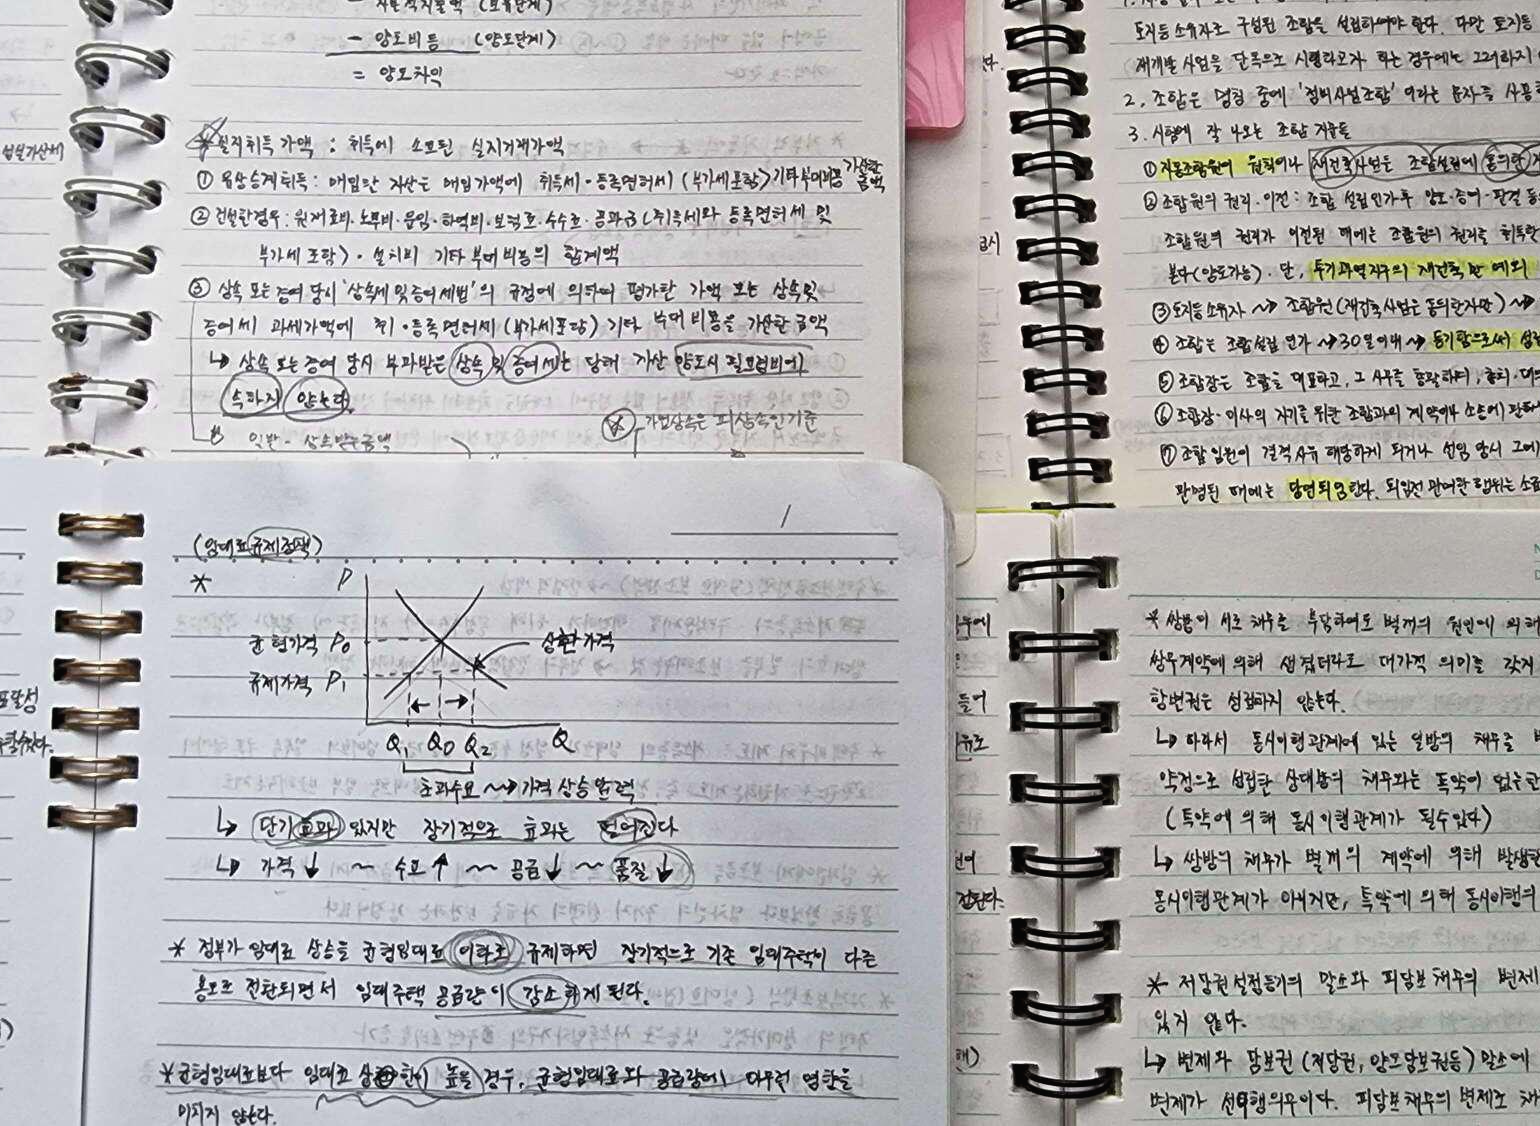 - 양도비등 (양도단계)
= 양도차익
실지취득가액 : 취득에 소요된 실지거래가액
① 유상승계취득 : 매입한 자산은 매입가액에 취득세·등록면허세 (부가세포함) 기타부대비용 가산한 금액
② 건설한경우 : 원재료비·노무비·운임·하역비·보험료·수수료·공과금 (취득세와 등록면허세 및
부가세 포함)·설치비 기타부대비용의 합계액
③ 상속 또는 증여 당시 '상속세및증여세법'의 규정에 의하여 평가한 가액 또는 상속및
증여세 과세가액에 취·등록면허세 (부가세포함) 기타 부대비용을 가산한 금액
↳ 상속 또는 증여 당시 부과받은 상속 및 증여세는 당해 자산 양도시 필요경비에
속하지 않는다.
가업상속은 피상속인기준
일반 - 상속받은금액
토지등소유자로 구성된 조합을 설립하여야 한다. 다만 토지등
재개발사업을 단독으로 시행하고자 하는 경우에는 그러하지
2. 조합은 명칭 중에 '정비사업조합' 이라는 문자를 사용
3. 시험에 잘 나오는 조합 지문들
① 자동조합원이 원칙이나 재건축사업은 조합설립에 동의한
② 조합원의 권리·이전 : 조합 설립인가후 양도·증여·판결 등
조합원의 권리가 이전된 때에는 조합원의 권리를 취득한
본다(양도가능). 단, 투기과열지구의 재건축만 예외
③ 토지등소유자 ~> 조합원 (재건축사업은 동의한자만) ~>
④ 조합는 조합설립 인가 ~> 30일이내 ~> 등기함으로써 성립
⑤ 조합장은 조합을 대표하고, 그 사무를 총괄하며, 총회·대의
⑥ 조합장·이사의 자기를 위한 조합과의 계약이나 소송에 관하여
⑦ 조합임원이 결격사유 해당하게 되거나 선임 당시 그에
판명된 때에는 당연퇴임한다. 퇴임전 관여한 행위는
(임대료규제정책)
* P
균형가격 P₀ 상한가격
규제가격 P₁
Q₁ Q₀ Q₂ Q
초과수요 ~> 가격상승압력
↳ 단기효과 있지만 장기적으로 효과는 떨어진다
↳ 가격↓ ~ 수요↑ ~ 공급↓ ~ 품질↓
* 정부가 임대료 상승을 균형임대료 이하로 규제하면 장기적으로 기존 임대주택이 다른
용도로 전환되면서 임대주택 공급량이 감소하게 된다.
* 균형임대료보다 임대료 상한이 높을 경우, 균형임대료와 공급량에 아무런 영향을
미치지 않는다.
* 쌍방이 서로 채무를 부담하여도 별개의 원인에 의해
쌍무계약에 의해 생겼더라도 대가적 의미를 갖지
항변권은 성립하지 않는다.
↳ 따라서 동시이행관계에 있는 일방의 채무를
약정으로 성립한 상대방의 채무와는 특약이 없는한
(특약에 의해 동시이행관계가 될수있다)
↳ 쌍방의 채무가 별개의 계약에 의해 발생한
동시이행관계가 아니지만, 특약에 의해 동시이행의
* 저당권설정등기의 말소와 피담보채무의 변제
있지 않다.
↳ 변제와 담보권 (저당권, 양도담보권등) 말소에
변제가 선이행의무이다. 피담보채무의 변제로